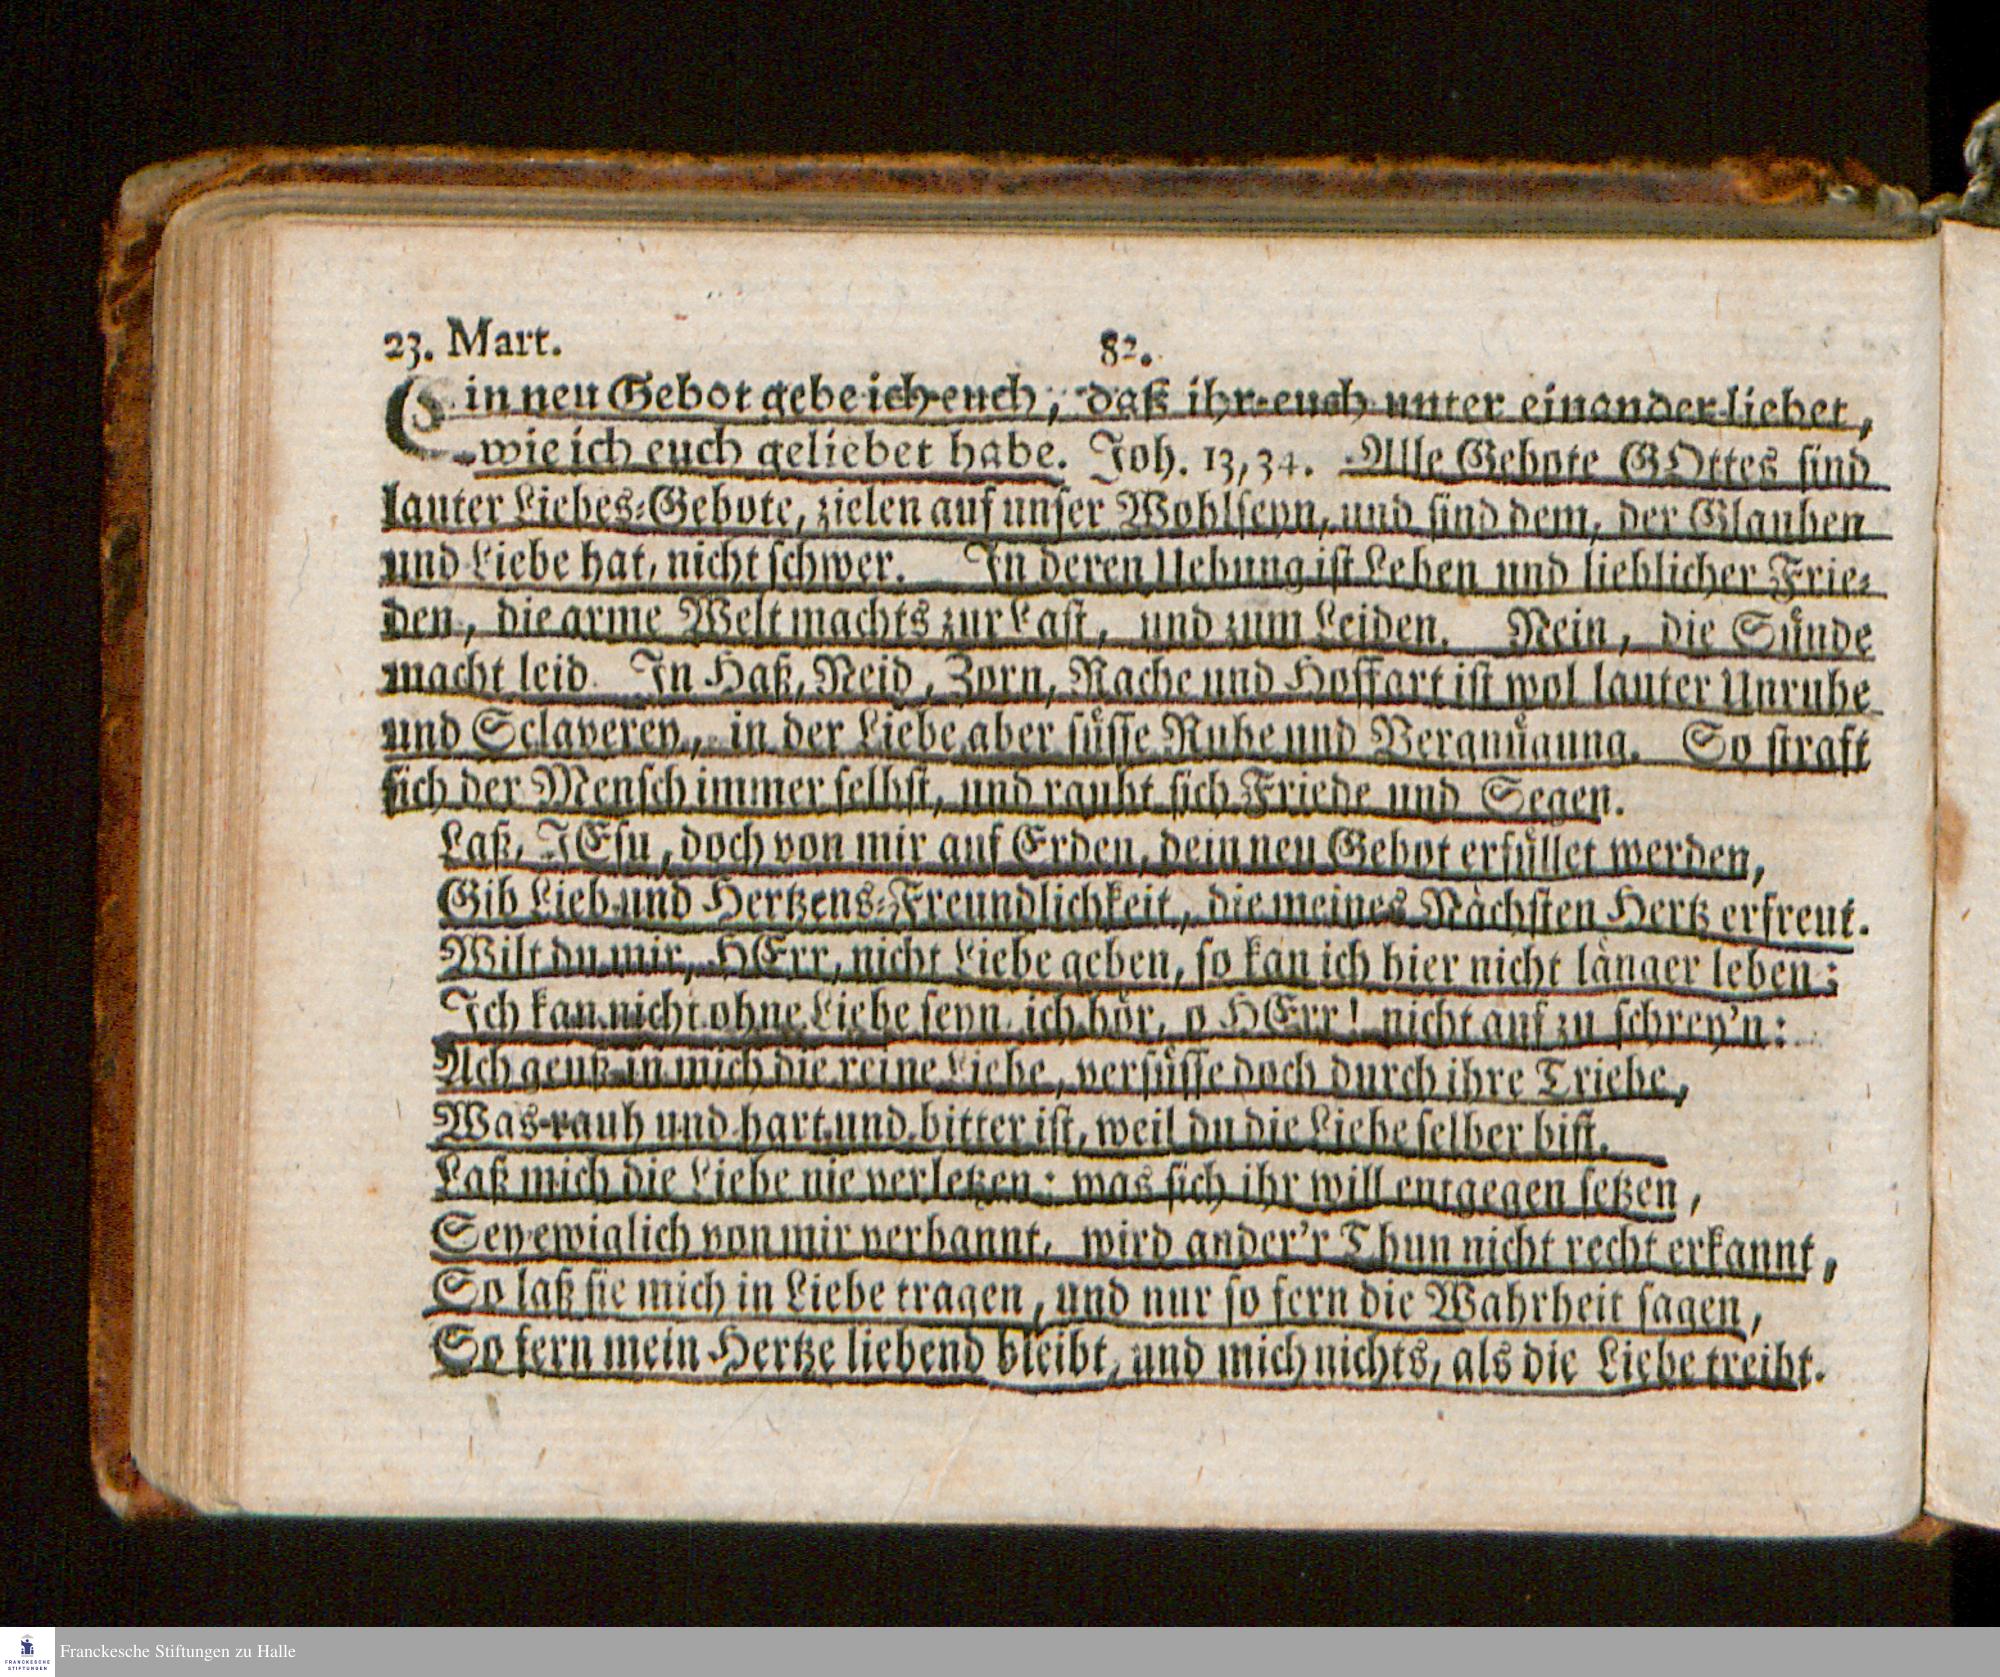 23. Mart. 82.
Ein neu Gebot gebe ich euch, daß ihr euch unter einander liebet,
wie ich euch geliebet habe. Joh. 13, 34. Alle Gebote GOttes sind
lauter Liebes-Gebote, zielen auf unser Wohlseyn, und sind dem, der Glauben
und Liebe hat, nicht schwer. In deren Uebung ist Leben und lieblicher Frie-
den, die arme Welt machts zur Last, und zum Leiden. Nein, die Sünde
macht leid. In Haß, Neid, Zorn, Rache und Hoffart ist wol lauter Unruhe
und Sclaverey, in der Liebe aber süsse Ruhe und Vergnügung. So straft
sich der Mensch immer selbst, und raubt sich Friede und Segen.
Laß, JEsu, doch von mir auf Erden, dein neu Gebot erfüllet werden,
Gib Lieb und Hertzens-Freundlichkeit, die meines Nächsten Hertz erfreut.
Wilt du mir, HErr, nicht Liebe geben, so kan ich hier nicht länger leben;
Ich kan nicht ohne Liebe seyn, ich hör, o HErr! nicht auf zu schrey'n:
Ach geuß in mich die reine Liebe, versüsse doch durch ihre Triebe,
Was rauh und hart und bitter ist, weil du die Liebe selber bist.
Laß mich die Liebe nie verletzen: was sich ihr will entgegen setzen,
Sey ewiglich von mir verbannt, wird ander'r Thun nicht recht erkannt,
So laß sie mich in Liebe tragen, und nur so fern die Wahrheit sagen,
So fern mein Hertze liebend bleibt, und mich nichts, als die Liebe treibt.
FRANCKESCHE
STIFTUNGEN
Franckesche Stiftungen zu Halle